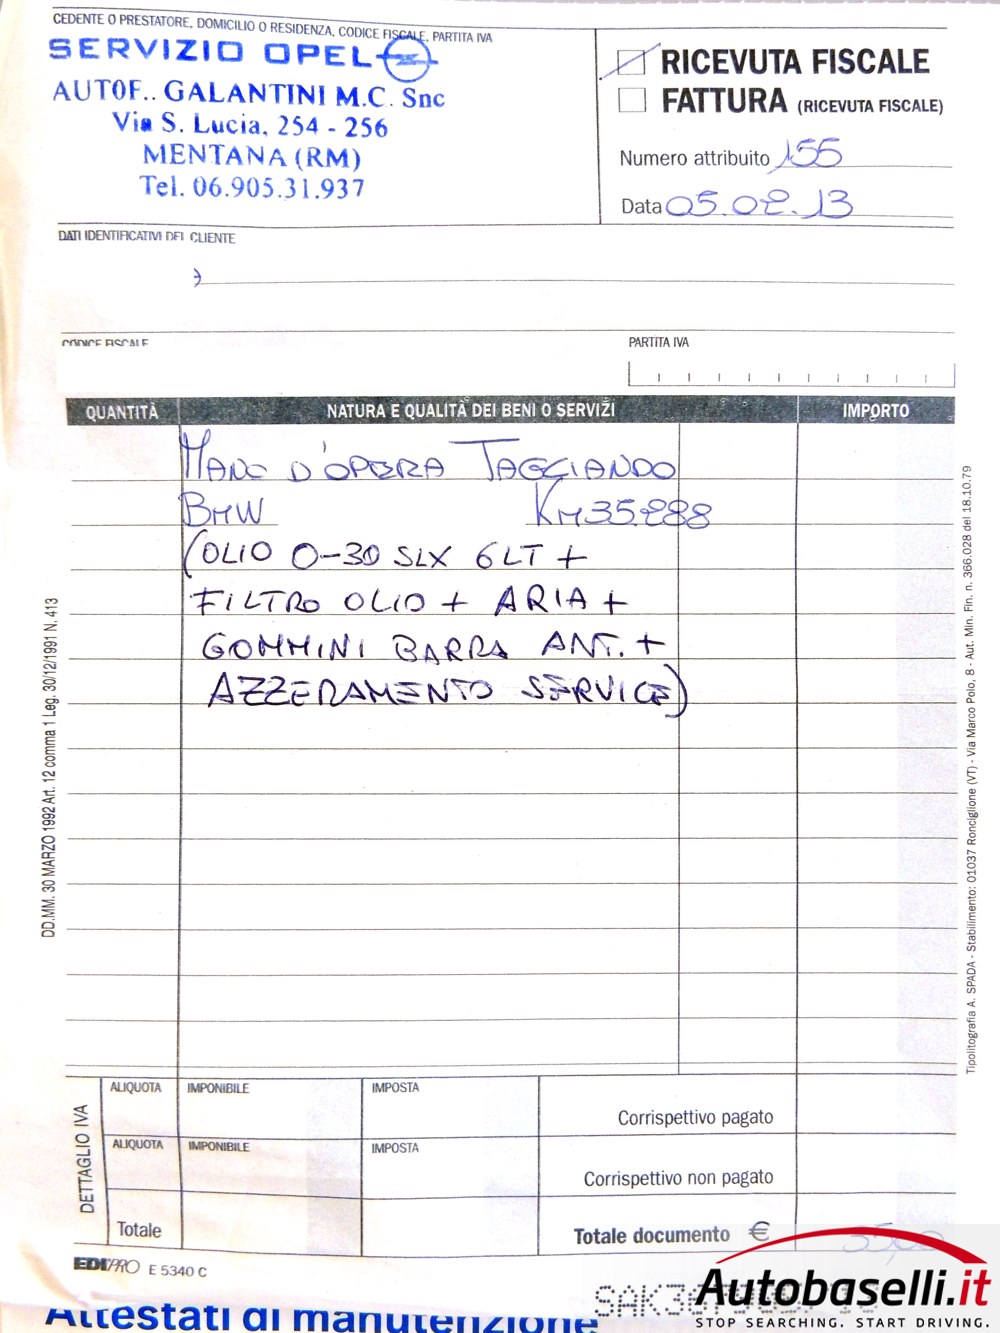 CEDENTE O PRESTATORE, DOMICILIO O RESIDENZA, CODICE FISCALE, PARTITA IVA
SERVIZIO OPEL
AUTOF.. GALANTINI M.C. Snc
Via S. Lucia, 254 - 256
MENTANA (RM)
Tel. 06.905.31.937
RICEVUTA FISCALE
FATTURA (RICEVUTA FISCALE)
Numero attribuito 155
Data 05.02.13
DATI IDENTIFICATIVI DEL CLIENTE
CODICE FISCALE
PARTITA IVA
QUANTITÀ NATURA E QUALITÀ DEI BENI O SERVIZI IMPORTO
MANO D'OPERA TAGGIANDO
BMW KM35.288
(OLIO 0-30 SLX 6LT +
FILTRO OLIO + ARIA +
GOMMINI BARRA ANT. +
AZZERAMENTO SERVICE)
DD.MM. 30 MARZO 1992 Art. 12 comma 1 Leg. 30/12/1991 N. 413
Tipolitografia A. SPADA - Stabilimento: 01037 Ronciglione (VT) - Via Marco Polo, 8 - Aut. Min. Fin. n. 366.028 del 18.10.79
DETTAGLIO IVA
ALIQUOTA IMPONIBILE IMPOSTA
Corrispettivo pagato
ALIQUOTA IMPONIBILE IMPOSTA
Corrispettivo non pagato
Totale
Totale documento €
EDIPRO E 5340 C
Autobaselli.it
STOP SEARCHING. START DRIVING.
Attestati di manutenzione